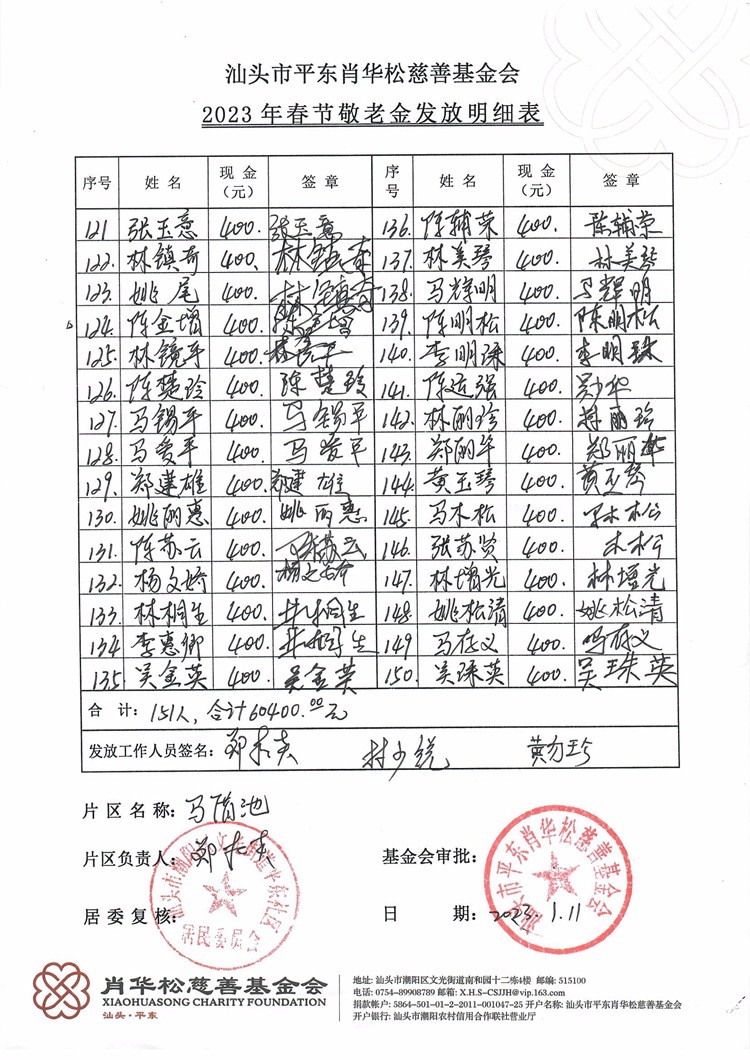 汕头市平东肖华松慈善基金会
2023年春节敬老金发放明细表
序号 姓名 现金（元） 签章 序号 姓名 现金（元） 签章
121 张玉意 400. 张玉意 136. 陈辅荣 400. 陈辅荣
122. 林镇奇 400. 林镇奇 137. 林美琴 400. 林美琴
123. 姚尾 400. 林镇奇 138. 马辉明 400. 马辉明
124. 陈金增 400. 陈金增 139. 陈明松 400. 陈明松
125. 林镜平 400. 140. 李明珠 400. 李明珠
126. 陈楚玲 400. 陈楚玲 141. 陈远强 400.
127. 马锡平 400. 马锡平 142. 林丽玲 400. 林丽玲
128. 马爱平 400. 马爱平 143. 郑丽华 400. 郑丽华
129. 郑建雄 400. 郑建雄 144. 黄玉琴 400. 黄玉琴
130. 姚丽惠 400. 姚丽惠 145. 马木松 400. 木松
131. 陈苏云 400. 陈苏云 146. 张苏贤 400. 木松
132. 杨文娇 400. 147. 林增光 400. 林增光
133. 林桐生 400. 林桐生 148. 姚松清 400. 姚松清
134 李惠卿 400. 149 马存义 400. 马存义
135. 吴金英 400. 吴金英 150. 吴珠英 400. 吴珠英
合 计：151人，合计60400.00元
发放工作人员签名：
片区名称：
片区负责人：
基金会审批：
居委复核：
日 期：2023.1.11
居民委员会
汕头市平东肖华松慈善基金会
肖华松慈善基金会
XIAOHUASONG CHARITY FOUNDATION
汕头·平东
地址：汕头市潮阳区文光街道南和园十二栋4楼 邮编：515100
电话：0754-89908789 邮箱：X.H.S-CSJJH@vip.163.com
捐款帐户：5864-501-01-2-2011-001047-25 开户名称：汕头市平东肖华松慈善基金会
开户银行：汕头市潮阳农村信用合作联社营业厅